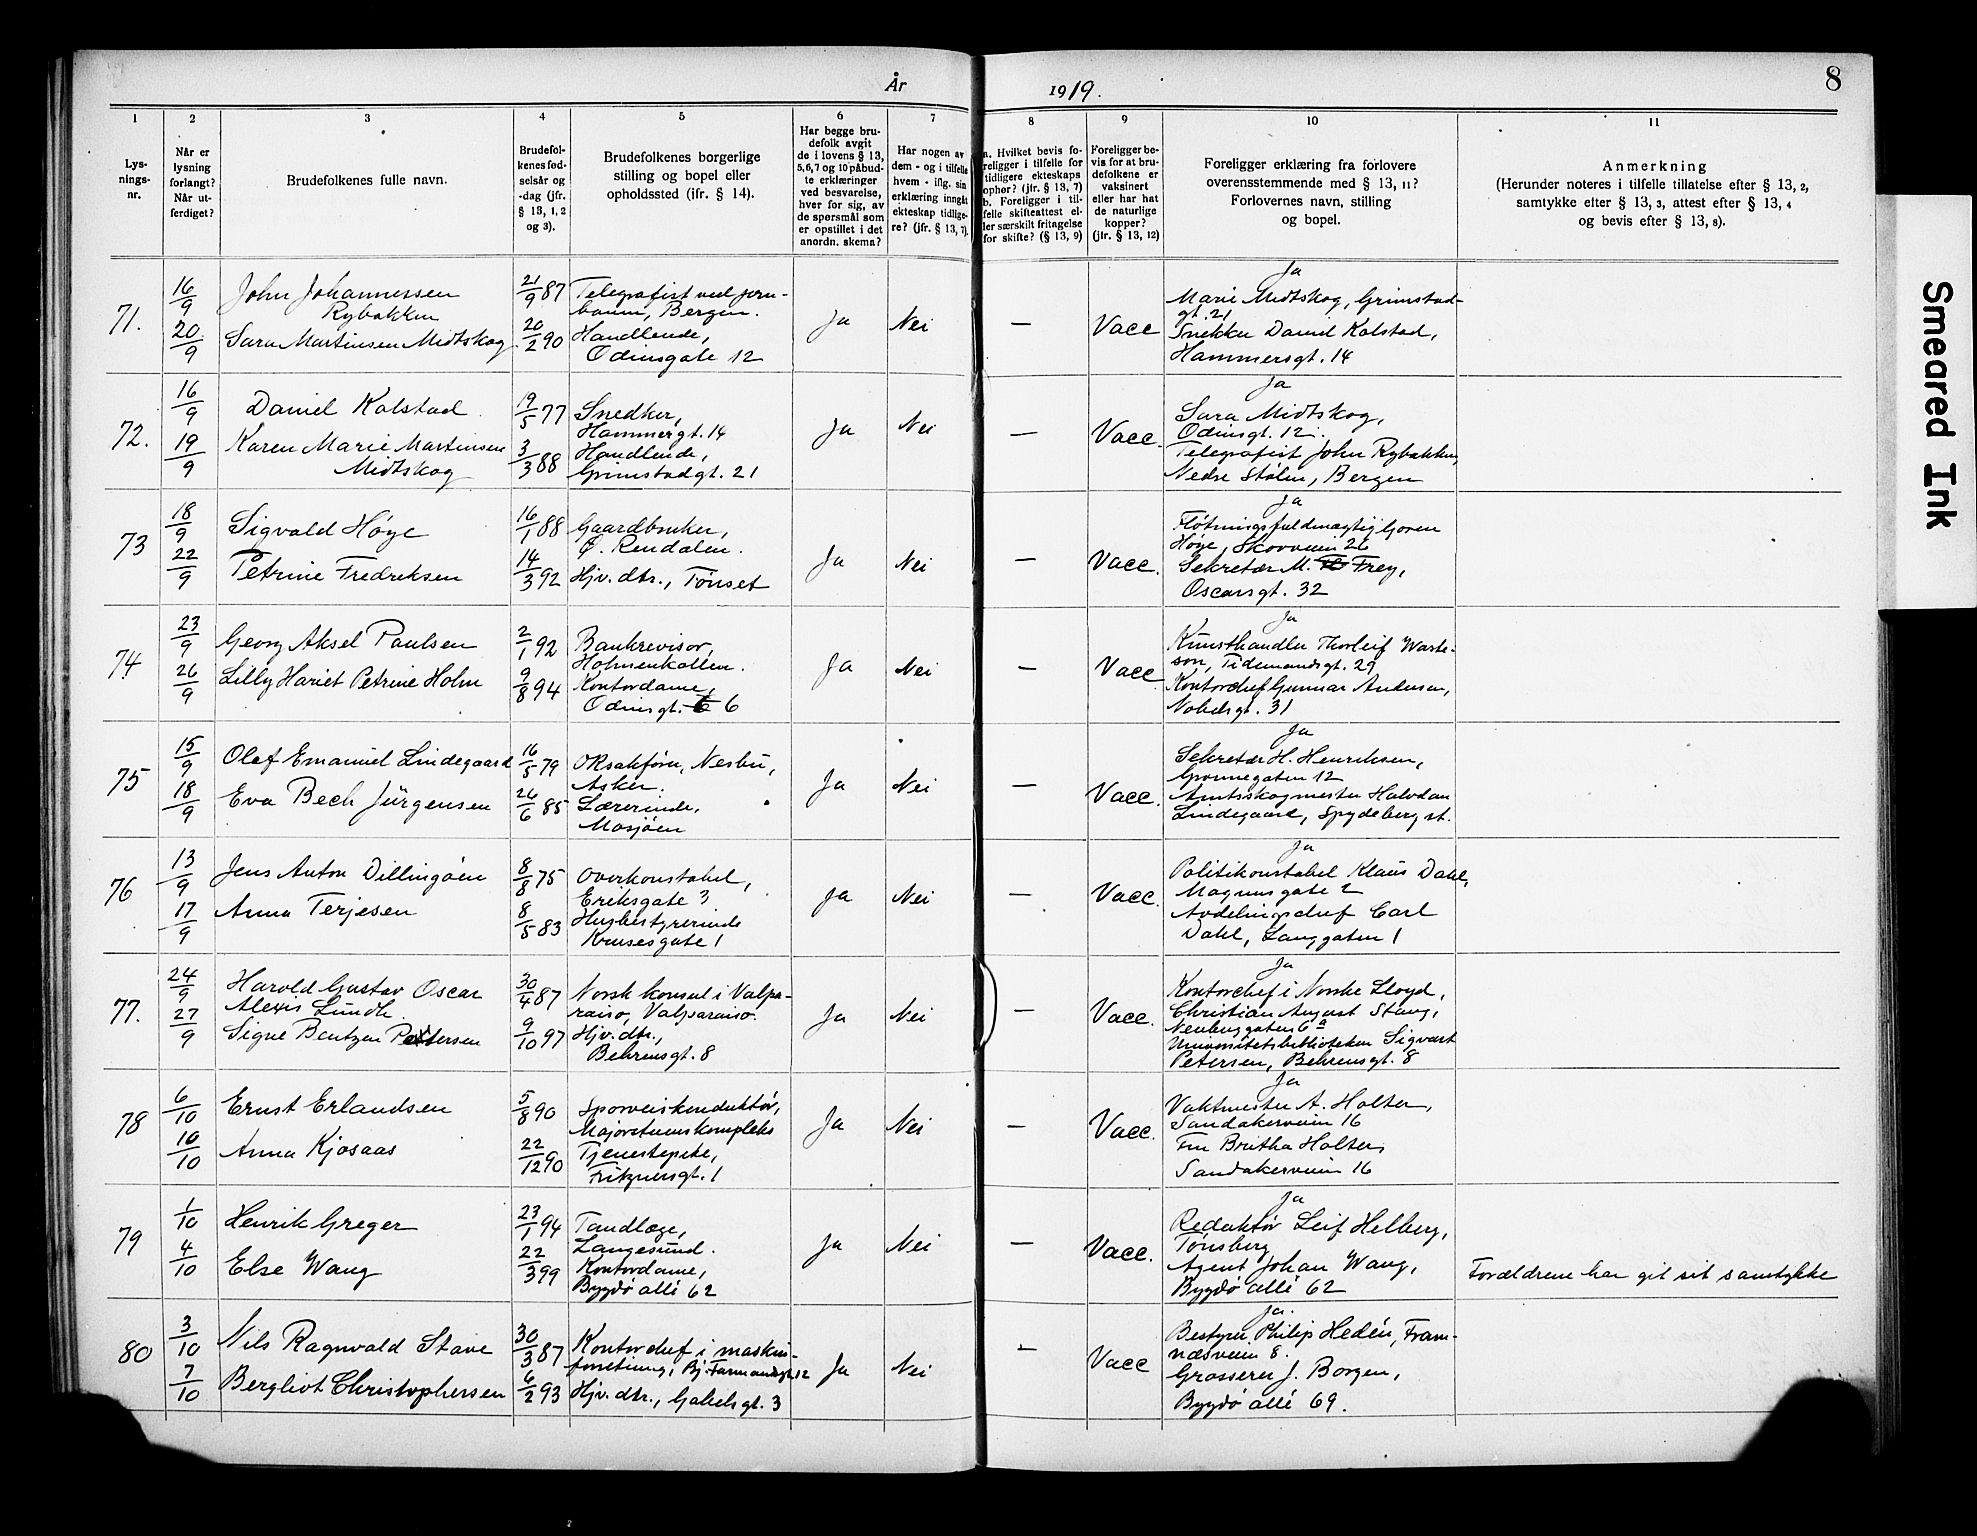 År 1919.
8
Smeared Ink
1 2 3 4 5 6 7 8 9 10 11
Lys-
nings-
nr.
Når er
lysning
forlangt?
Når ut-
ferdiget?
Brudefolkenes fulle navn.
Brudefol-
kenes fød-
selsår og
-dag (jfr.
§ 13, 1, 2
og 3).
Brudefolkenes borgerlige
stilling og bopel eller
opholdssted (ifr. § 14).
Har begge bru-
defolk avgit
de i lovens § 13,
5,6,7 og 10 påbud-
te erklæringer
ved besvarelse,
hver for sig, av
de spørsmål som
er opstillet i det
anordn. skema?
Har nogen av
dem - og i tilfelle
hvem - iflg. sin
erklæring inngåt
ekteskap tidlige-
re? (jfr. § 13, 7).
a. Hvilket bevis fo-
religger i tilfelle for
tidligere ekteskaps
ophør? (jfr. § 13, 7)
b. Foreligger i til-
felle skifteattest el-
ler særskilt fritagelse
for skifte? (§ 13, 9)
Foreligger be-
vis for at bru-
defolkene er
vaksinert
eller har hat
de naturlige
kopper?
(jfr. § 13, 12)
Foreligger erklæring fra forlovere
overensstemmende med § 13, 11?
Forlovernes navn, stilling
og bopel.
Anmerkning
(Herunder noteres i tilfelle tillatelse efter § 13, 2,
samtykke efter § 13, 3, attest efter § 13, 4
og bevis efter § 13, 8).
71.
16/9
20/9
John Johannessen
Rybakken
Sara Martinsen Midtskog
21/9 87
20/2 90
Telegrafist ved jern-
banen, Bergen.
Handlende,
Odinsgate 12
Ja
Nei
—
Vacc
Ja
Marie Midtskog, Grimstad-
gt. 21
Snekker Daniel Kolstad,
Hammersgt. 14
72.
16/9
19/9
Daniel Kolstad
Karen Marie Martinsen
Midtskog
19/5 77
3/3 88
Snedker,
Hammergt. 14
Handlende,
Grimstadgt. 21
Ja
Nei
—
Vacc.
Ja
Sara Midtskog,
Odinsgt. 12.
Telegrafist John Rybakken,
Nedre Stølen, Bergen
73
18/9
22/9
Sigvald Høye
Petrine Fredriksen
16/1 88
14/3 92
Gaardbruker,
Ø. Rendalen.
Hjv. dtr., Tønset
Ja
Nei
—
Vacc.
Ja
Fløtningsfuldmægtig Goren
Høye, Skovveien 26
Sekretær M. Frey,
Oscarsgt. 32
74
23/9
26/9
Georg Aksel Paulsen
Lilly Hariet Petrine Holm
2/1 92
9/8 94
Bankrevisor,
Holmenkollen.
Kontordame,
Odinsgt. 6
Ja
Nei
—
Vacc.
Ja
Kunsthandler Thorleif Warte-
son, Tidemandsgt. 29
Kontorchef Gunnar Andersen,
Nobelsgt. 31
75
15/9
18/9
Olaf Emanuel Lindegaard
Eva Bech Jürgensen
16/5 79
26/6 85
O R sakfører, Nesbu,
Asker.
Lærerinde,
Mosjøen
Ja
Nei
—
Vacc.
Ja
Sekretær H. Henriksen,
Grønnegaten 12
Amtsskogmester Halvdan
Lindegaard, Spydeberg st.
76
13/9
17/9
Jens Anton Dillingøen
Anna Terjesen
8/8 75
8/5 83
Overkonstabel,
Eriksgate 3
Husbestyrerinde
Krusesgate 1
Ja
Nei
—
Vacc.
Ja
Politikonstabel Klaus Dahl,
Magnusgate 2
Avdelingschef Carl
Dahl, Langgaten 1
77.
24/9
27/9
Harald Gustav Oscar
Alexis Lundh.
Signe Bentzen Petersen
30/4 87
9/10 97
Norsk konsul i Valpa-
raiso, Valparaiso.
Hjv. dtr.,
Behrensgt. 8
Ja
Nei
—
Vacc.
Ja
Kontorchef i Norske Lloyd,
Christian August Stang,
Neubuggaten 6 a
Universitetsbibliotekar Sigvart
Petersen, Behrensgt. 8
78
6/10
10/10
Ernst Erlandsen
Anna Kjosaas
5/8 90
22/12 90
Sporveiskonduktør,
Majorstuenskompleks
Tjenestepike,
Fritznersgt. 1
Ja
Nei
—
Vacc.
Ja
Vaktmester A. Holter,
Sandakerveien 16
Fru Britha Holter,
Sandakerveien 16
79
1/10
4/10
Henrik Greger
Else Wang
23/1 94
22/3 99
Tandlæge,
Langesund.
Kontordame,
Bygdø allé 62
Ja
Nei
—
Vacc.
Ja
Redaktør Leif Helberg,
Tønsberg
Agent Johan Wang,
Bygdø allé 62
Forældrene har git sit samtykke
80
3/10
7/10
Nils Ragnvald Stave
Bergliot Christophersen
30/3 87
6/2 93
Kontorchef i maskin-
forretning, Bj. Farmandsgt. 12
Hjv. dtr., Gabelsgt. 3
Ja
Nei
—
Vacc
Ja.
Bestyrer Philip Hedén, Fram-
næsveien 8.
Grosserer J. Borgen,
Bygdø allé 69.